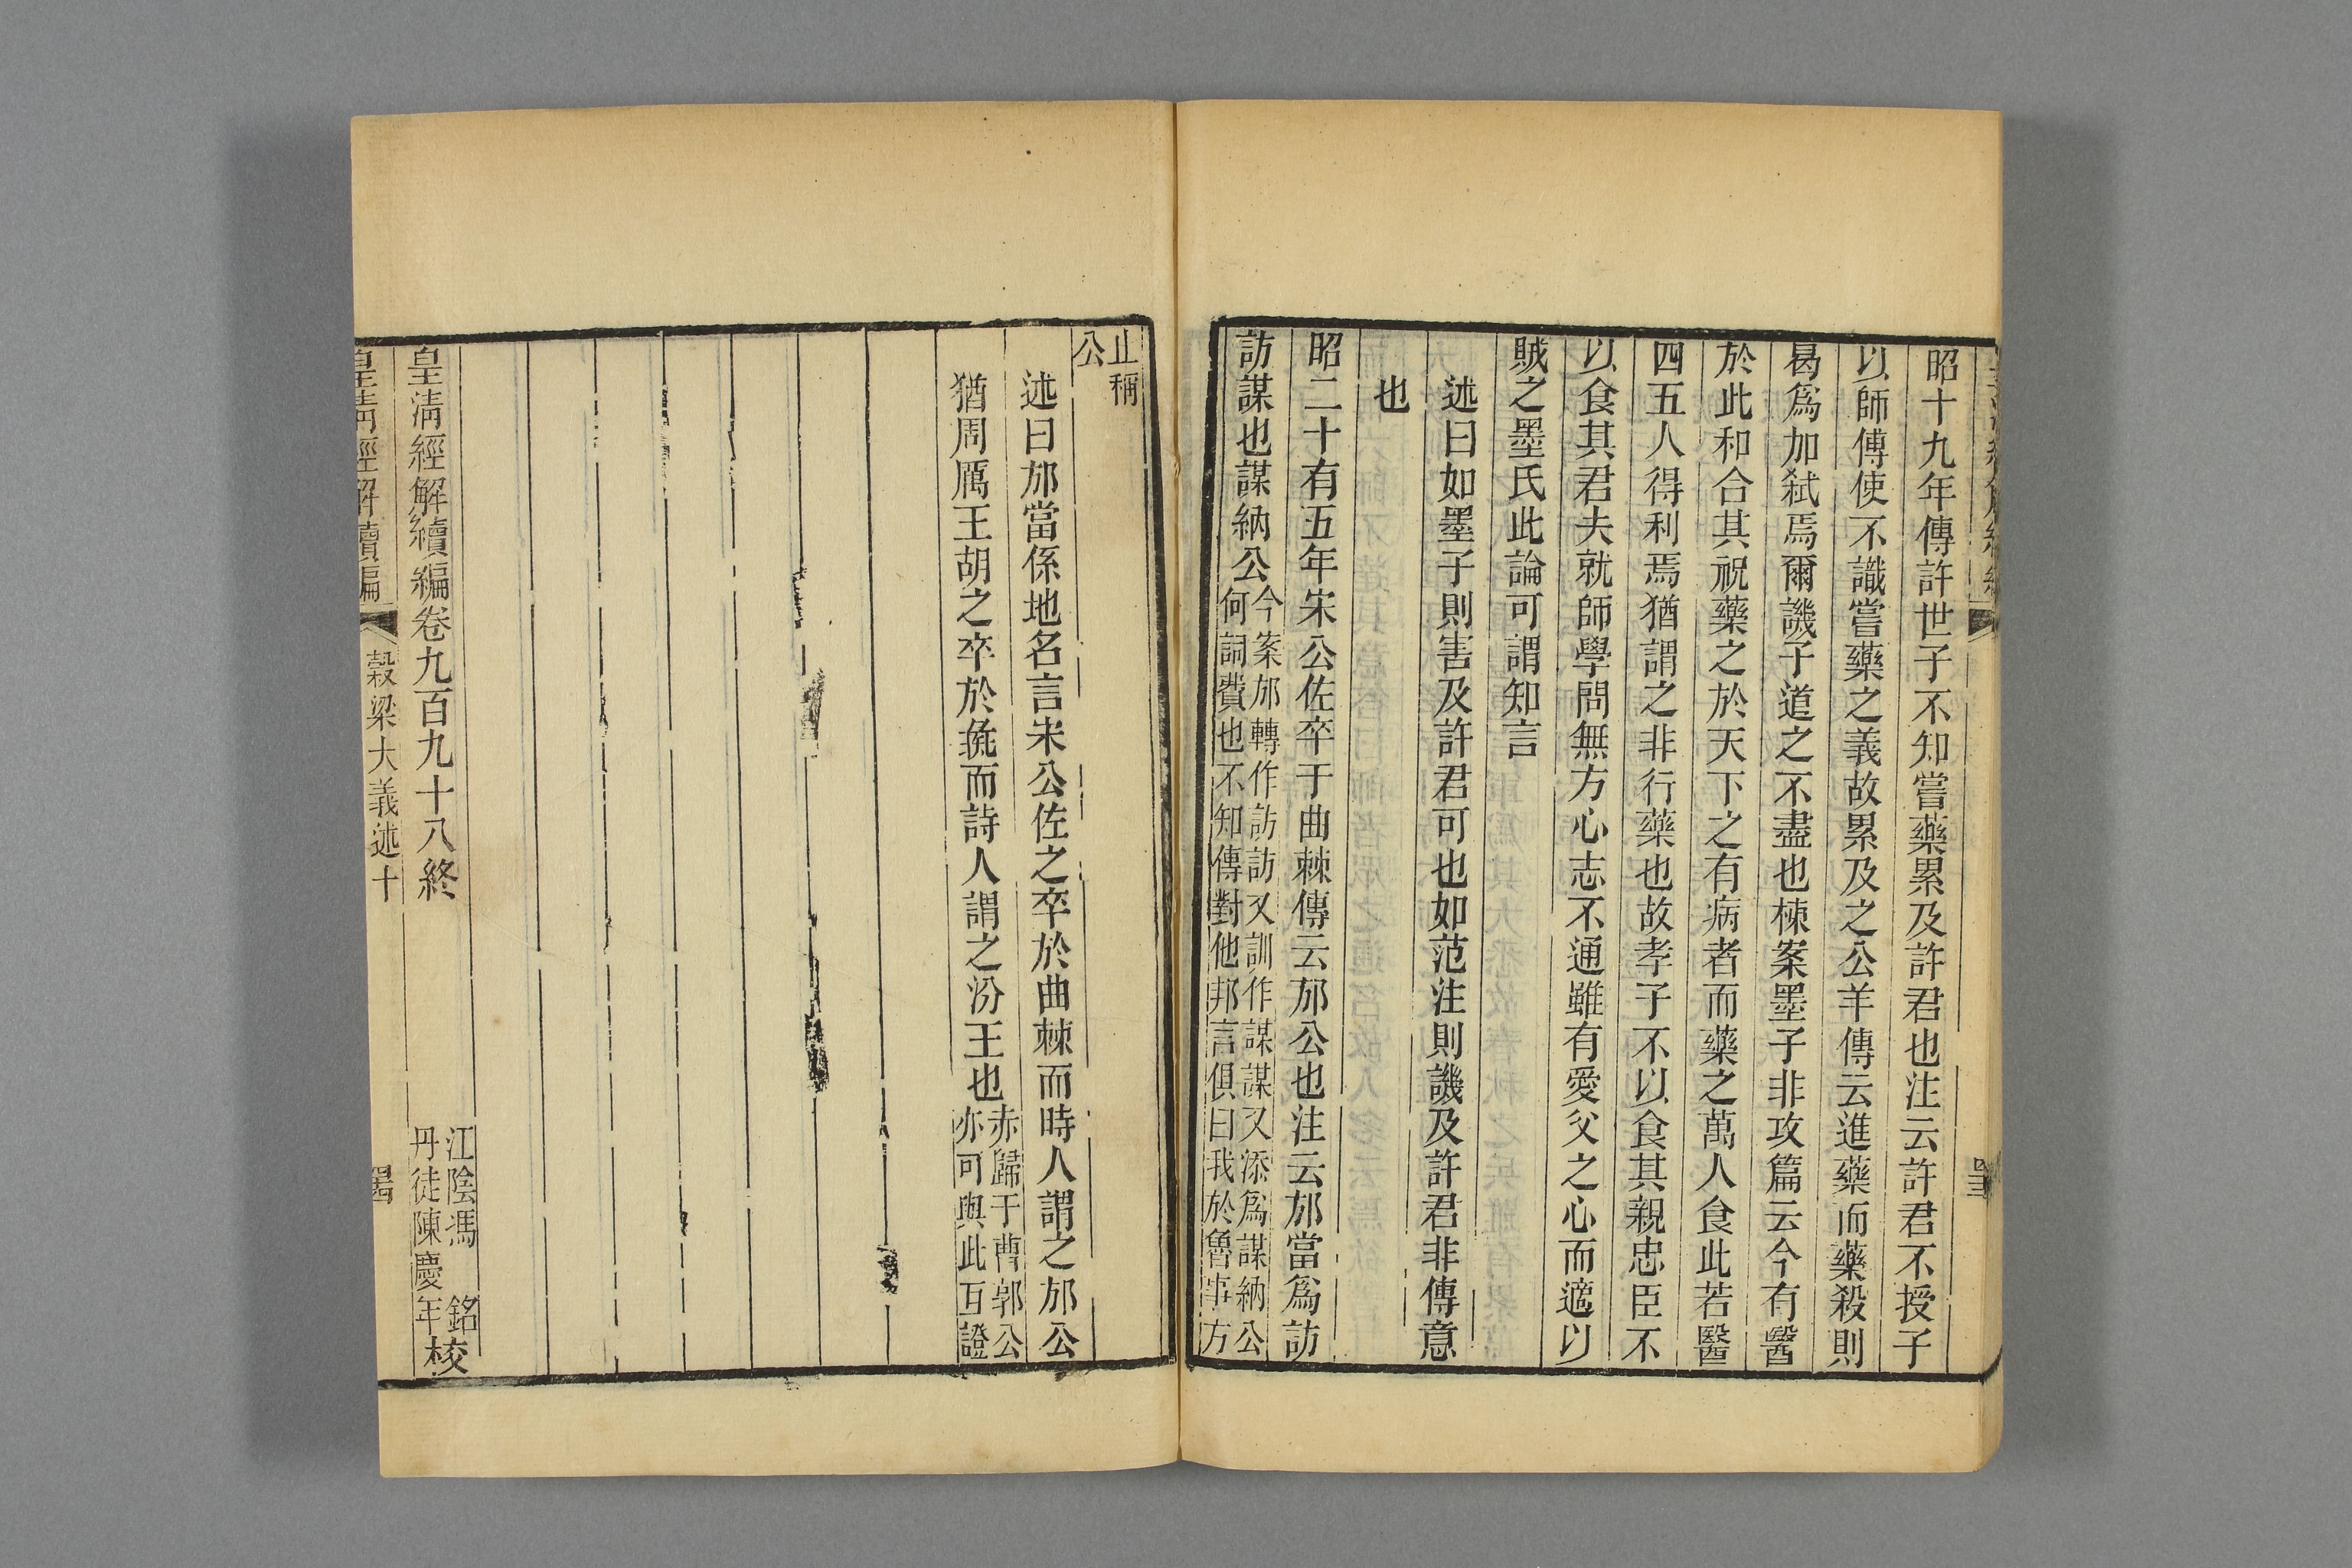 昭十九年傳許世子不知嘗藥累及許君也注云許君不授子
以師傅使不識嘗藥之義故累及之公羊傳云進藥而藥殺則
曷爲加弑焉爾譏子道之不盡也棟案墨子非攻篇云今有醫
於此和合其祝藥之於天下之有病者而藥之萬人食此若醫
四五人得利焉猶謂之非行藥也故孝子不以食其親忠臣不
以食其君夫就師學問無方心志不通雖有愛父之心而適以
賊之墨氏此論可謂知言
述曰如墨子則害及許君可也如范注則譏及許君非傳意
也
昭二十有五年宋公佐卒于曲棘傳云邡公也注云邡當爲訪
訪謀也謀納公今案邡轉作訪訪又訓作謀謀又添爲謀納公
何詞費也不知傳對他邦言俱曰我於魯事方
止稱
公
述曰邡當係地名言宋公佐之卒於曲棘而時人謂之邡公
猶周厲王胡之卒於彘而詩人謂之汾王也赤歸于曹郭公
亦可與此互證
皇清經解續編卷九百九十八終
江陰馮 銘
丹徒陳慶年校
皇清經解續編
穀梁大義述十